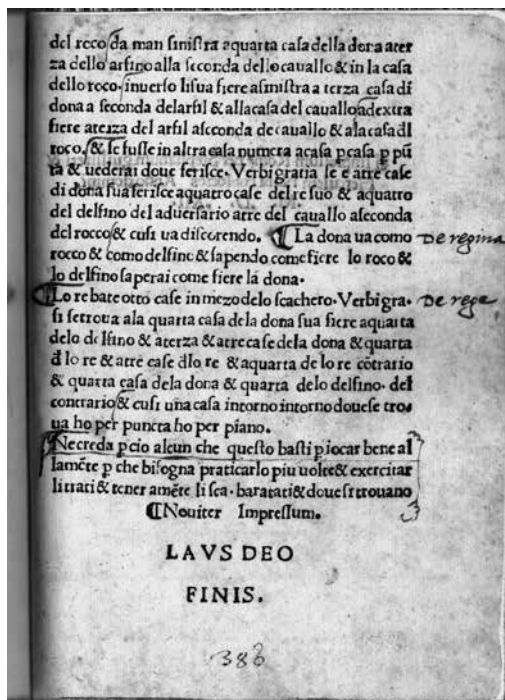 del roco da man sinistra a quarta casa della dona a ter
za dello arfino alla seconda dello cavallo & in la casa
dello roco. inverso li sua fiere a sinistra a terza casa di
dona a seconda delarfil & alla casa del cauallo adextra
fiere a terza del arfil a seconda de cauallo & ala casa dl
roco. & se fusse in altra casa numera a casa p casa p pũ
ta & uederai doue ferisce. Verbigratia se e a tre case
di dona sua ferisce a quatro case del re suo & a quatro
del delfino del aduersario a tre del cauallo a seconda
del rocco & cusi ua discorendo. ¶ La dona ua como
rocco & como delfino & sapendo come fiere lo roco &
lo delfino saperai come fiere la dona.
¶ Lo re bate otto case in mezo delo scachero. Verbigra.
si se troua ala quarta casa dela dona sua fiere a quarta
delo delfino & a terza & a tre case dela dona & quarta
d lo re & a tre case dlo re & a quarta de lo re cõtrario
& quarta casa dela dona & quarta delo delfino. del
contrario & cusi una casa intorno intorno doue se tro
ua ho per puncta ho per piano.
Ne creda p cio alcun che questo basti p iocar bene al
lamẽte p che bisogna praticarlo piu uolte & exercitar
li trati & tener a mẽte li sca. baratati & doue si trouano
¶ Nouiter Impressum.
LAVS DEO
FINIS.
De regina
De rege
386